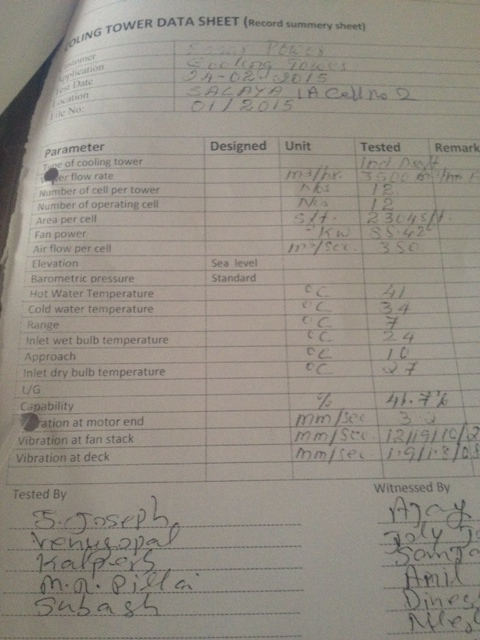 OOLING TOWER DATA SHEET (Record summery sheet)
Customer Power
Application Cooling Tower
Test Date 24-02-2015
Location SALAYA 1A Cell no 2
File No: 01/2015
Parameter Designed Unit Tested Remark
Type of cooling tower Ind
flow rate m³/hr. 3500 m³/hr
Number of cell per tower Nos 12
Number of operating cell Nos 12
Area per cell s/t. 2304 s/t.
Fan power KW 85.42
Air flow per cell m³/sec. 350
Elevation Sea level
Barometric pressure Standard
Hot Water Temperature °C 41
Cold water temperature °C 34
Range °C 7
Inlet wet bulb temperature °C 24
Approach °C 10
Inlet dry bulb temperature °C 27
L/G
Capability %
ration at motor end mm/sec 3.2
Vibration at fan stack mm/sec.
Vibration at deck mm/sec
Tested By Witnessed By
S. Joseph Ajay
Venugopal
Kalpesh
M.R. Pillai Amil
Subash Dines